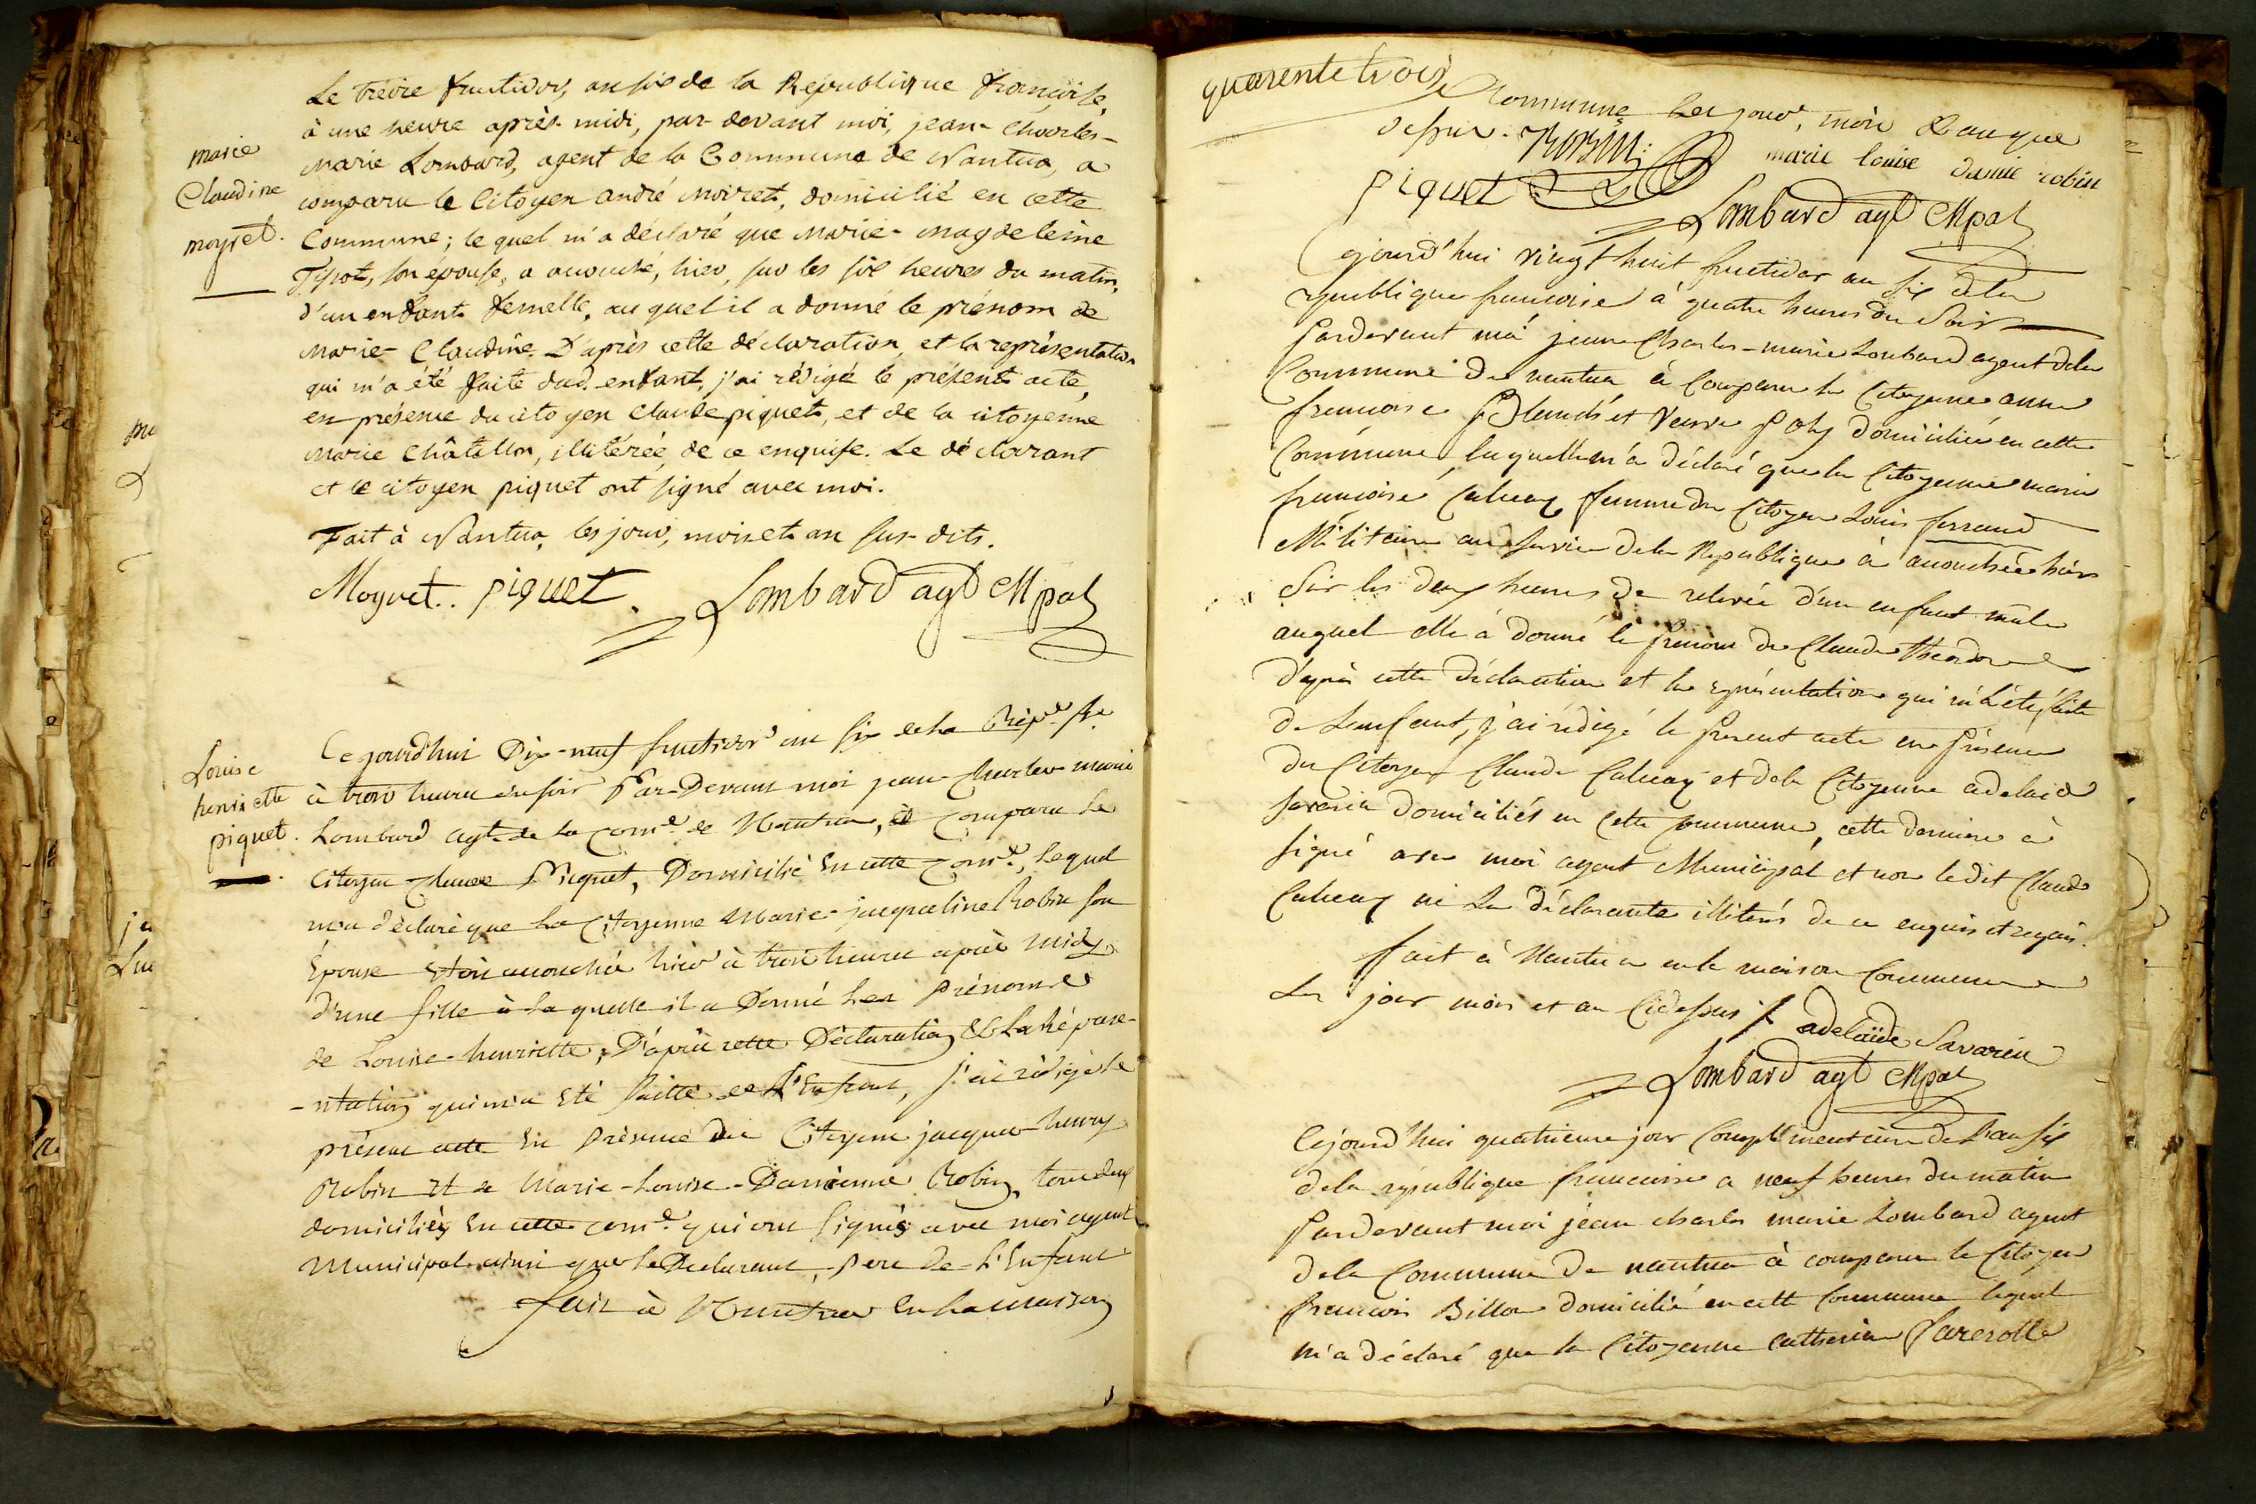 marie
Claudine
moyret.
Le treize fructidor, an six de la République françoise,
à une heure après-midi, par-devant moi, jean-Charles-
marie Lombard, agent de la Commune de Nantua, a
comparu le Citoyen andré moiret, domicilié en cette
Commune; lequel m'a déclaré que marie-magdeleine
son épouse, a accouché, hier, sur les six heures du matin,
d'un enfant femelle, auquel il a donné le prénom de
marie-Claudine. D'après cette déclaration, et la représentation
qui m'a été faite dud. enfant, j'ai rédigé le présent acte,
en présence du citoyen Claude piquet, et de la citoyenne
marie Châtillon, illitérée, de ce enquise. Le déclarant
et le citoyen piquet ont signé avec moi.
Fait à Nantua, les jour, mois et an sus-dits.
Moyret. piquet. Lombard agt Mpal
Louise
henriette
piquet.
Ce jourd'hui Dix-neuf fructidor an six de la Répue. fse
à trois heures du soir Par-Devant moi jean-Charles-marie
Lombard agt de la come. de Nantua, est comparu le
Citoyen Claude Picquet, Domicilié En cette come. lequel
m'a déclaré que la Citoyenne Marie-jacqueline Robin son
Epouse Etoit accouchée hier à trois heures après midy
d'une fille à la quelle il a Donné les prénoms
de Louise-henriette; D'après cette Déclaration & la Représe-
-ntation qui m'a Eté faitte de L'Enfant, j'ai rédigé le
présent acte En présence du Citoyen jacques-henry
Robin Et de Marie-Louise-Damienne Robin, tous deux
domiciliés En cette come. qui ont signés avec moi agent
Municipal ainsi que le Déclarant, pere de L'Enfant
fait à Nantua En la maison
quarente trois
Commune Les jour, mois & an que
dessus. ROBIN marie louise damie robin
piquet Lombard agt Mpal
Cejourd'hui vingt huit fructidor an six de la
republique francoise à quatre heures du Soir
Pardevant moi jean Charles-marie Lombard agent de la
Commune de nantua à Comparu la Citoyenne anne
francoise Blandet Veuve Poly domiciliée en cette
Commune laquelle m'a déclaré que la Citoyenne marie
francoise femme du Citoyen Louis ferrand
Militaire au Service de la Republique à accouchée hier
Sur les deux heures de relevée d'un enfant mâle
auquel elle à donné le prenom de Claude théodore
D'après cette Déclaration et la représentation qui m'à été faite
de L'enfant, j'ai rédigé le present acte en présence
du Citoyen Claude et de la Citoyenne adelaide
Savarin domiciliés en cette Commune, cette derniere à
signé avec moi agent Municipal et non le dit Claude
ni la déclarante illiterés de ce enquis et requis.
fait à Nantua en la maison Commune
Les jour mois et an Cidessus adelaïde Savarin
Lombard agt Mpal
Cejourd'hui quatrieme jour Complementaire de L'an six
de la république francoise a neuf heures du matin
Pardevant moi jean charles marie Lombard agent
de la Commune de nantua à comparu le Citoyen
francois Billon domicilié en cette Commune lequel
m'a déclaré que la Citoyenne catherine